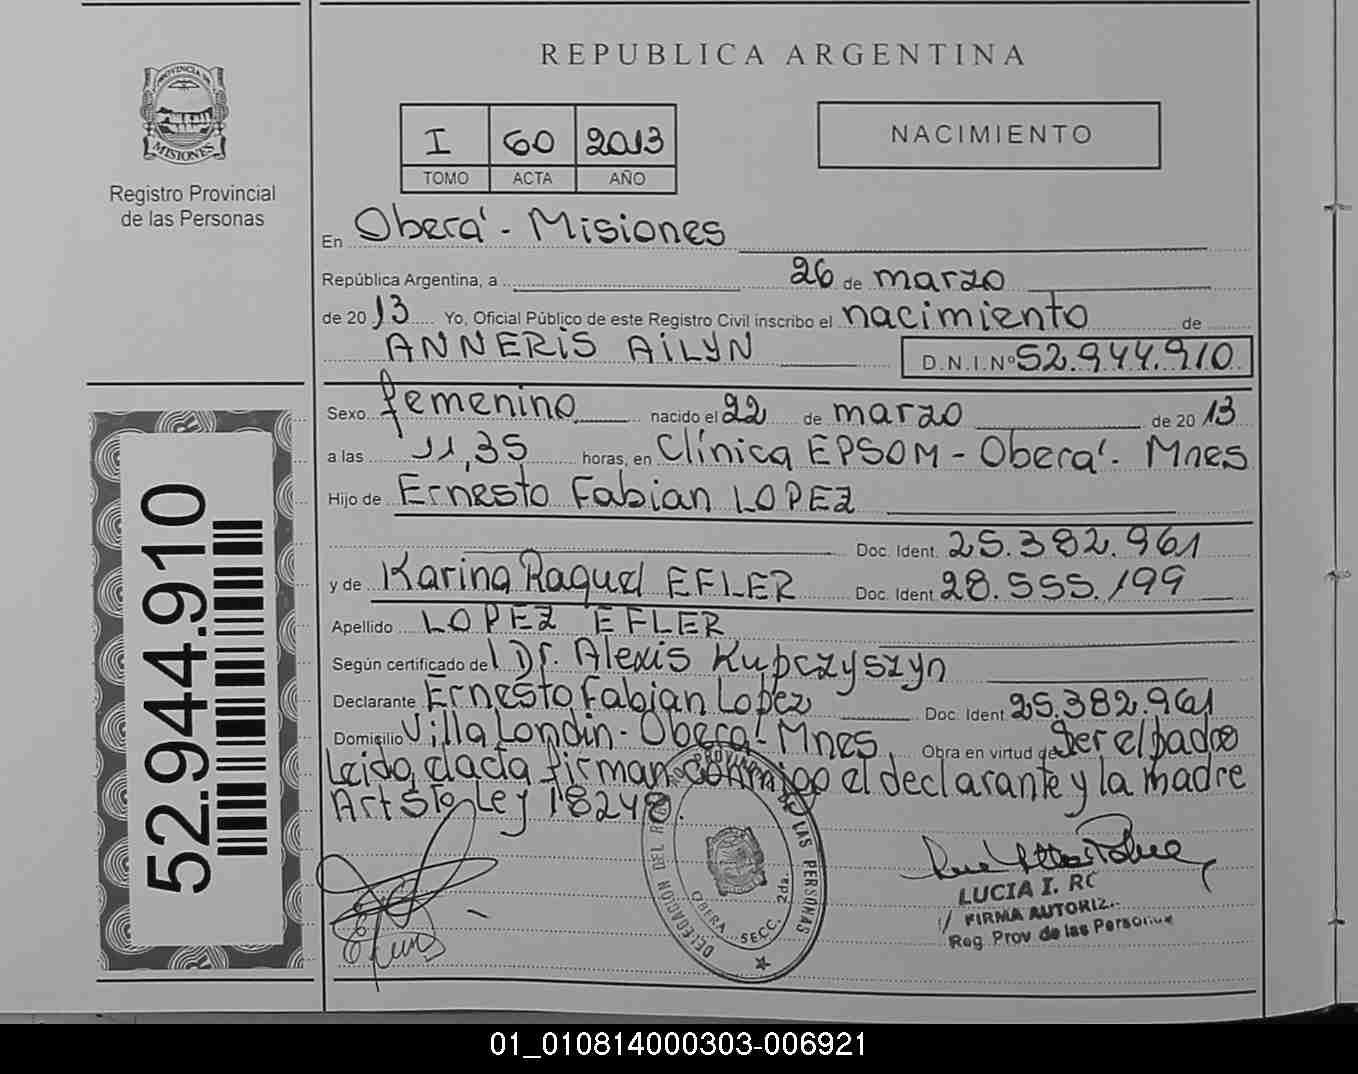 REPUBLICA ARGENTINA
PROVINCIA DE
MISIONES
Registro Provincial
de las Personas
I 60 2013
TOMO ACTA AÑO
NACIMIENTO
En Oberá - Misiones
República Argentina, a 26 de marzo
de 2013 Yo, Oficial Público de este Registro Civil inscribo el nacimiento de
ANNERIS AILYN D.N.I.Nº 52.944.910
Sexo femenino nacido el 22 de marzo de 2013
a las 11,35 horas, en Clínica EPSOM - Oberá - Mnes
Hijo de Ernesto Fabian LOPEZ
Doc. Ident. 25.382.961
y de Karina Raquel EFLER Doc. Ident. 28.555.199
Apellido LOPEZ EFLER
Según certificado del Dr. Alexis Kupczyszyn
Declarante Ernesto Fabian Lopez Doc. Ident 25.382.961
Domicilio Villa Londin - Oberá - Mnes. Obra en virtud de ser el padre
Leido el acta firman conmigo el declarante y la madre
Art 5to Ley 18248.
52.944.910
DELEGACION DEL REGISTRO PROVINCIAL DE LAS PERSONAS
OBERA SECC. 2da.
LUCIA I.
FIRMA AUTORIZ.
Reg. Prov de las Personas
01_010814000303-006921